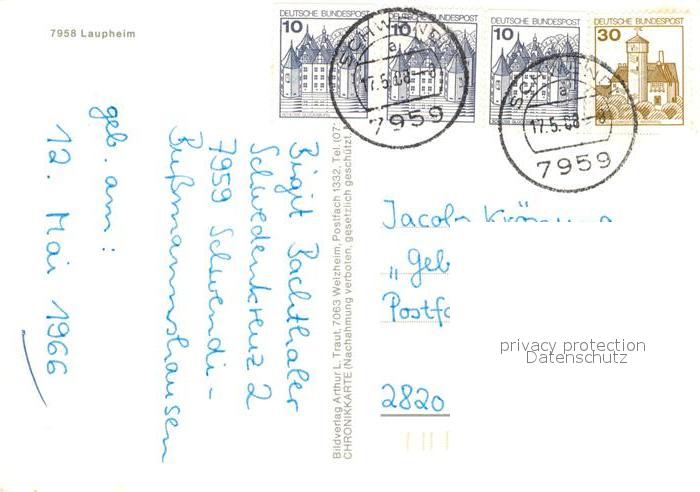 7958 Laupheim
10 DEUTSCHE BUNDESPOST
10 DEUTSCHE BUNDESPOST
10 DEUTSCHE BUNDESPOST
30 DEUTSCHE BUNDESPOST
SCHWENDI
a
17.5.88-8
7959
SCHWENDI
a
17.5.88-8
7959
geb. am:
12. Mai 1966
Birgit Bachthaler
Schwedenkreuz 2
7959 Schwendi-
Bußmannshausen
Bildverlag Arthur L. Traut, 7063 Welzheim, Postfach 1332, Tel. (07
CHRONIKKARTE (Nachahmung verboten, gesetzlich geschützt.
Jacobs
„Geb
Postfc
2820
privacy protection
Datenschutz